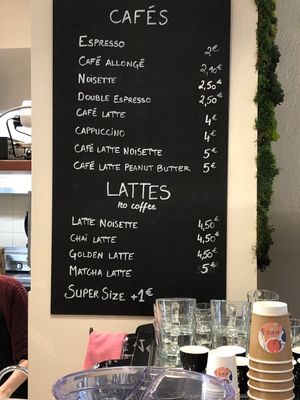 CAFÉS
ESPRESSO 2€
CAFÉ ALLONGÉ 2,10€
NOISETTE 2,50€
DOUBLE ESPRESSO 2,50€
CAFÉ LATTE 4€
CAPPUCCINO 4€
CAFÉ LATTE NOISETTE 5€
CAFÉ LATTE PEANUT BUTTER 5€
LATTES
no coffee
LATTE NOISETTE 4,50€
CHAI LATTE 4,50€
GOLDEN LATTE 4,50€
MATCHA LATTE 5€
SUPER SIZE +1€